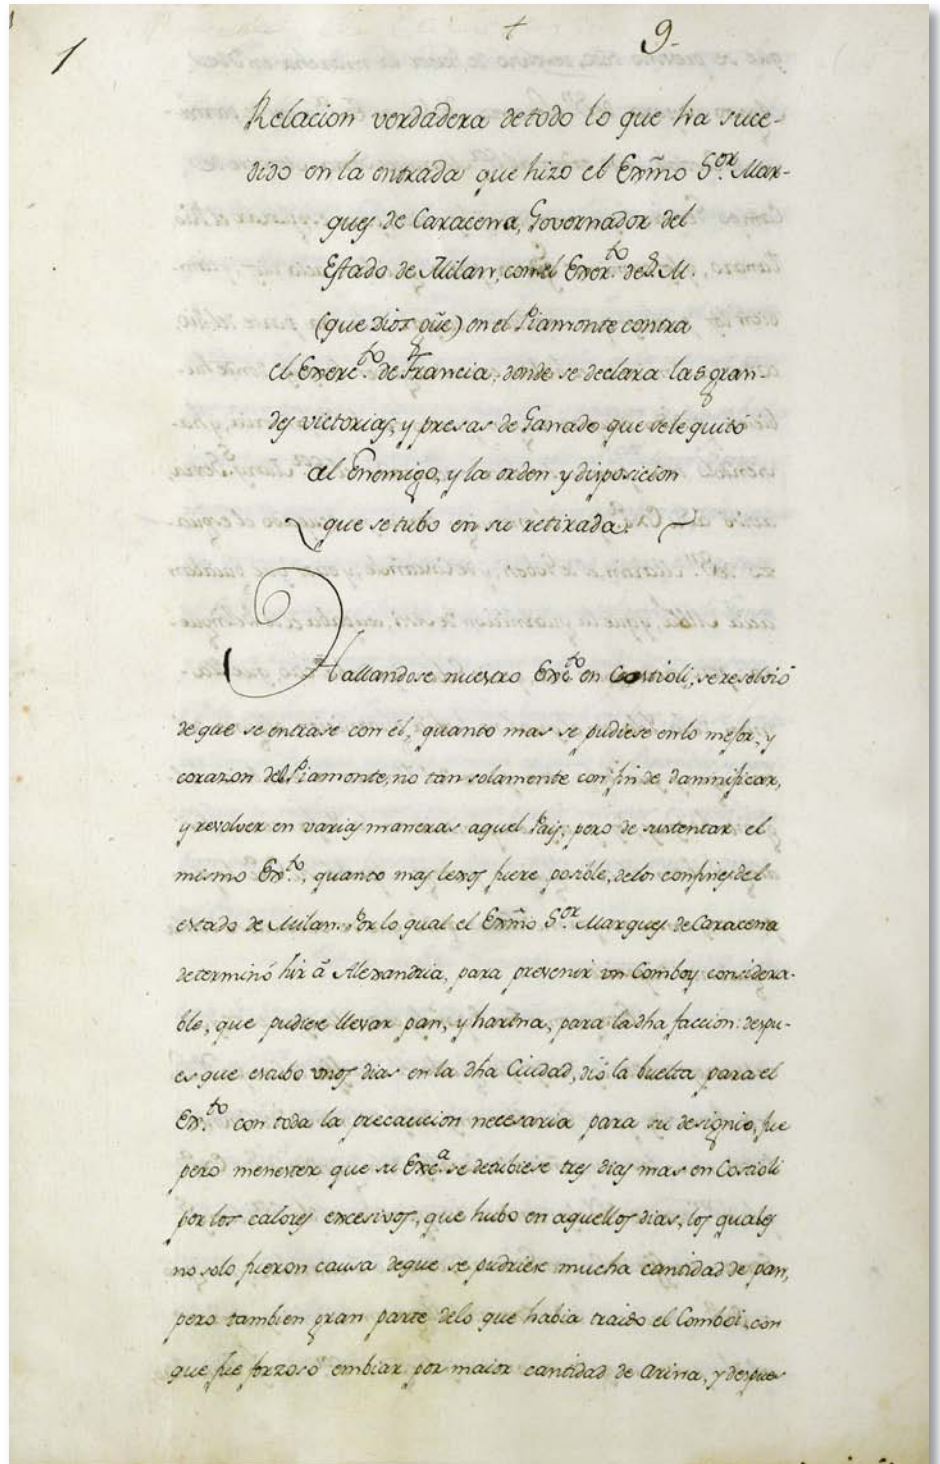 1
+
9-
Relacion verdadera detodo lo que ha suce-
dido en la entrada que hizo el Exm̃o S.or Mar-
ques de Caracena, Governador del
Estado de Milan, con el Exer.to de S. M.
(que Dios gũe) en el Piamonte contra
el Exerc.to de Francia, donde se declara las gran-
des victorias, y presas de Ganado que se le quitó
al Enemigo, y la orden y disposicion
que se tubo en su retirada.
Hallandose nuestro Exc.to en Costioli, se resolvió
de que se entrase con él, quanto mas se pudiese en lo mejor, y
corazon del Piamonte, no tan solamente con fin de damnificar,
y revolver en varias maneras aquel Pais; pero de sustentar el
mismo Ex.to, quanto mas lexos fuere posible, delos confines del
estado de Milan. Por lo qual el Exm̃o S.or Marques de Caracena
determinó hir â Alexandria, para prevenir un Comboy considera-
ble, que pudiese llevar pan, y harina, para la dha faccion: despu-
es que estubo unos dias en la dha Ciudad, dió la buelta para el
Ex.to con toda la precaucion necesaria para su designio, fue
pero menester que su Exc.a se detubiese tres dias mas en Costioli
por los calores excesivos, que hubo en aquellos dias, los quales
no solo fueron causa deque se pudriese mucha cantidad de pan,
pero tambien gran parte delo que habia traido el Comboi, con
que fue forzoso embiar por maior cantidad de arina, y despues